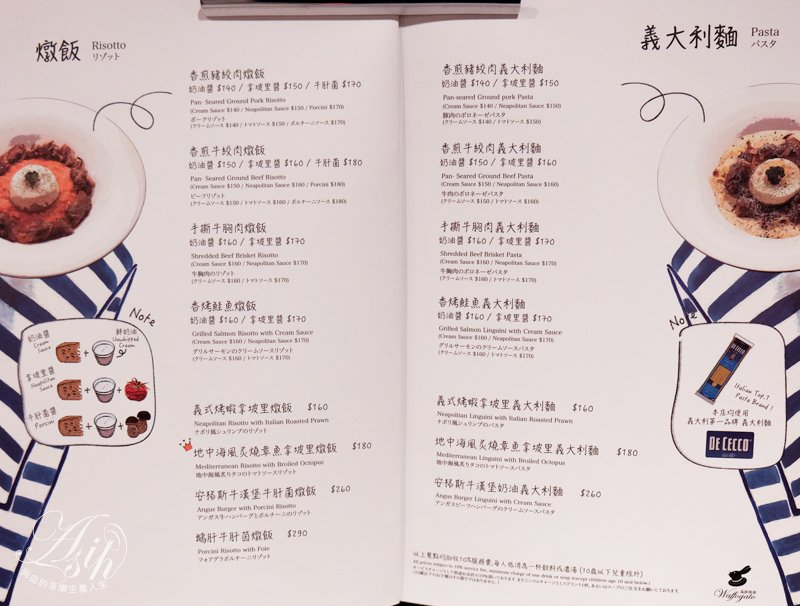 燉飯
Risotto
リゾット
香煎豬絞肉燉飯
奶油醬 $140 / 拿坡里醬 $150 / 牛肝菌 $170
Pan- Seared Ground Pork Risotto
(Cream Sauce $140 / Neapolitan Sauce $150 / Porcini $170)
ポークリゾット
(クリームソース $140 / トマトソース $150 / ポルチーニソース $170)
香煎牛絞肉燉飯
奶油醬 $150 / 拿坡里醬 $160 / 牛肝菌 $180
Pan- Seared Ground Beef Risotto
(Cream Sauce $150 / Neapolitan Sauce $160 / Porcini $180)
ビーフリゾット
(クリームソース $150 / トマトソース $160 / ポルチーニソース $180)
手撕牛胸肉燉飯
奶油醬 $160 / 拿坡里醬 $170
Shredded Beef Brisket Risotto
(Cream Sauce $160 / Neapolitan Sauce $170)
牛胸肉のリゾット
(クリームソース $160 / トマトソース $170)
香烤鮭魚燉飯
奶油醬 $160 / 拿坡里醬 $170
Grilled Salmon Risotto with Cream Sauce
(Cream Sauce $160 / Neapolitan Sauce $170)
グリルサーモンのクリームソースリゾット
(クリームソース $160 / トマトソース $170)
義式烤蝦拿坡里燉飯 $160
Neapolitan Risotto with Italian Roasted Prawn
ナポリ風シュリンプのリゾット
地中海風炙燒章魚拿坡里燉飯 $180
Mediterranean Risotto with Broiled Octopus
地中海風炙りタコのトマトソースリゾット
安格斯牛漢堡牛肝菌燉飯 $260
Angus Burger with Porcini Risotto
アンガス牛ハンバーグとポルチーニのリゾット
鵝肝牛肝菌燉飯 $290
Porcini Risotto with Foie
フォアグラポルチーニリゾット
Note
奶油醬
Cream
Sauce
鮮奶油
Unwhipped
Cream
拿坡里醬
Neapolitan
Sauce
牛肝菌醬
Porcini
Asih
義大利麵
Pasta
パスタ
香煎豬絞肉義大利麵
奶油醬 $140 / 拿坡里醬 $150
Pan-seared Ground pork Pasta
(Cream Sauce $140 / Neapolitan Sauce $150)
豚肉のポロネーゼパスタ
(クリームソース $140 / トマトソース $150)
香煎牛絞肉義大利麵
奶油醬 $150 / 拿坡里醬 $160
Pan-seared Ground Beef Pasta
(Cream Sauce $150 / Neapolitan Sauce $160)
牛肉のポロネーゼパスタ
(クリームソース $150 / トマトソース $160)
手撕牛胸肉義大利麵
奶油醬 $160 / 拿坡里醬 $170
Shredded Beef Brisket Pasta
(Cream Sauce $160 / Neapolitan Sauce $170)
牛胸肉のポロネーゼパスタ
(クリームソース $160 / トマトソース $170)
香烤鮭魚義大利麵
奶油醬 $160 / 拿坡里醬 $170
Grilled Salmon Linguini with Cream Sauce
(Cream Sauce $160 / Neapolitan Sauce $170)
グリルサーモンのクリームソースパスタ
(クリームソース $160 / トマトソース $170)
義式烤蝦拿坡里義大利麵 $160
Neapolitan Linguini with Italian Roasted Prawn
ナポリ風シュリンプのパスタ
地中海風炙燒章魚拿坡里義大利麵 $180
Mediterranean Linguini with Broiled Octopus
地中海風炙りタコのトマトソースパスタ
安格斯牛漢堡奶油義大利麵 $260
Angus Burger Linguini with Cream Sauce
アンガスビーフハンバーグのクリームソースパスタ
Note
Italian Top.1
Pasta Brand!
本店均使用
義大利第一品牌 義大利麵
DE CECCO
以上餐點均加收10%服務費,每人低消為一杯飲料或濃湯 (10歲以下兒童除外)
All prices subject to 10% service fee, minimum charge of one drink or soup (except children age 10 and below)
Waffogato